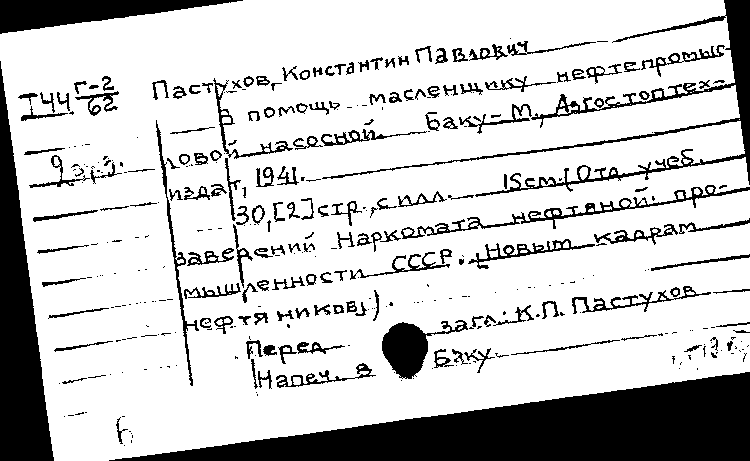 Т44 Г-2/62 Пастухов, Константин Павлович
В помощь масленщику нефтепромыс-
ловой насосной. Баку-М., Азгостоптех-
издат, 1941.
2 экз.
30,[2] стр., с илл. 15см. (Отд. учеб.
заведений Наркомата нефтяной про-
мышленности СССР. Новым кадрам
нефтяников).
Перед загл.: К.П. Пастухов
Напеч. в Баку.